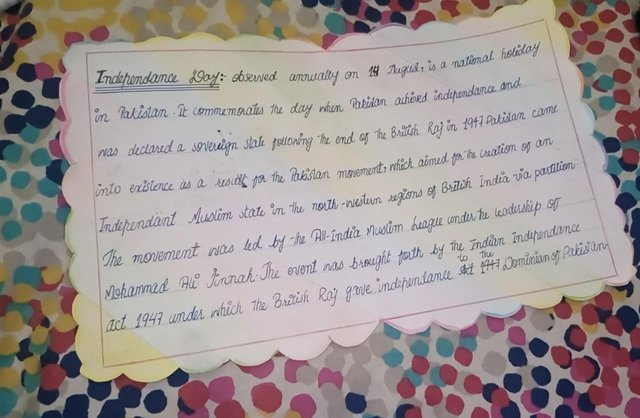 Independance Day:- observed annually on 14 August, is a national holiday
in Pakistan. It commemorates the day when Pakistan achived independance and
was declared a sovereign state following the end of the British Raj in 1947. Pakistan came
into existence as a result for the Pakistan movement, which aimed for the creation of an
Independant Muslim state in the north-western regions of British India via partition.
The movement was led by the All-India Muslim League under the leadership off
Mohammad Ali Jinnah. The event was brought forth by the Indian Independance
act 1947 under which the British Raj gave independance to the Dominian of Pakistan.